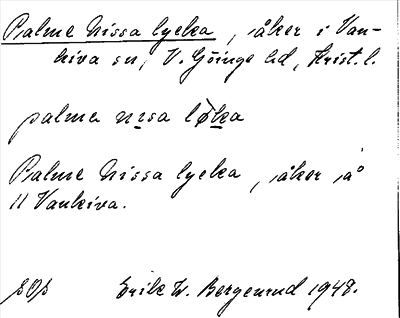 Palme Nissa lycka, åker i Van-
kiva sn, V. Göinge hd, Krist. l.
palma nisa løka
Palme Nissa lycka, åker på
11 Vankiva.
Erik W. Bergenrud 1948.